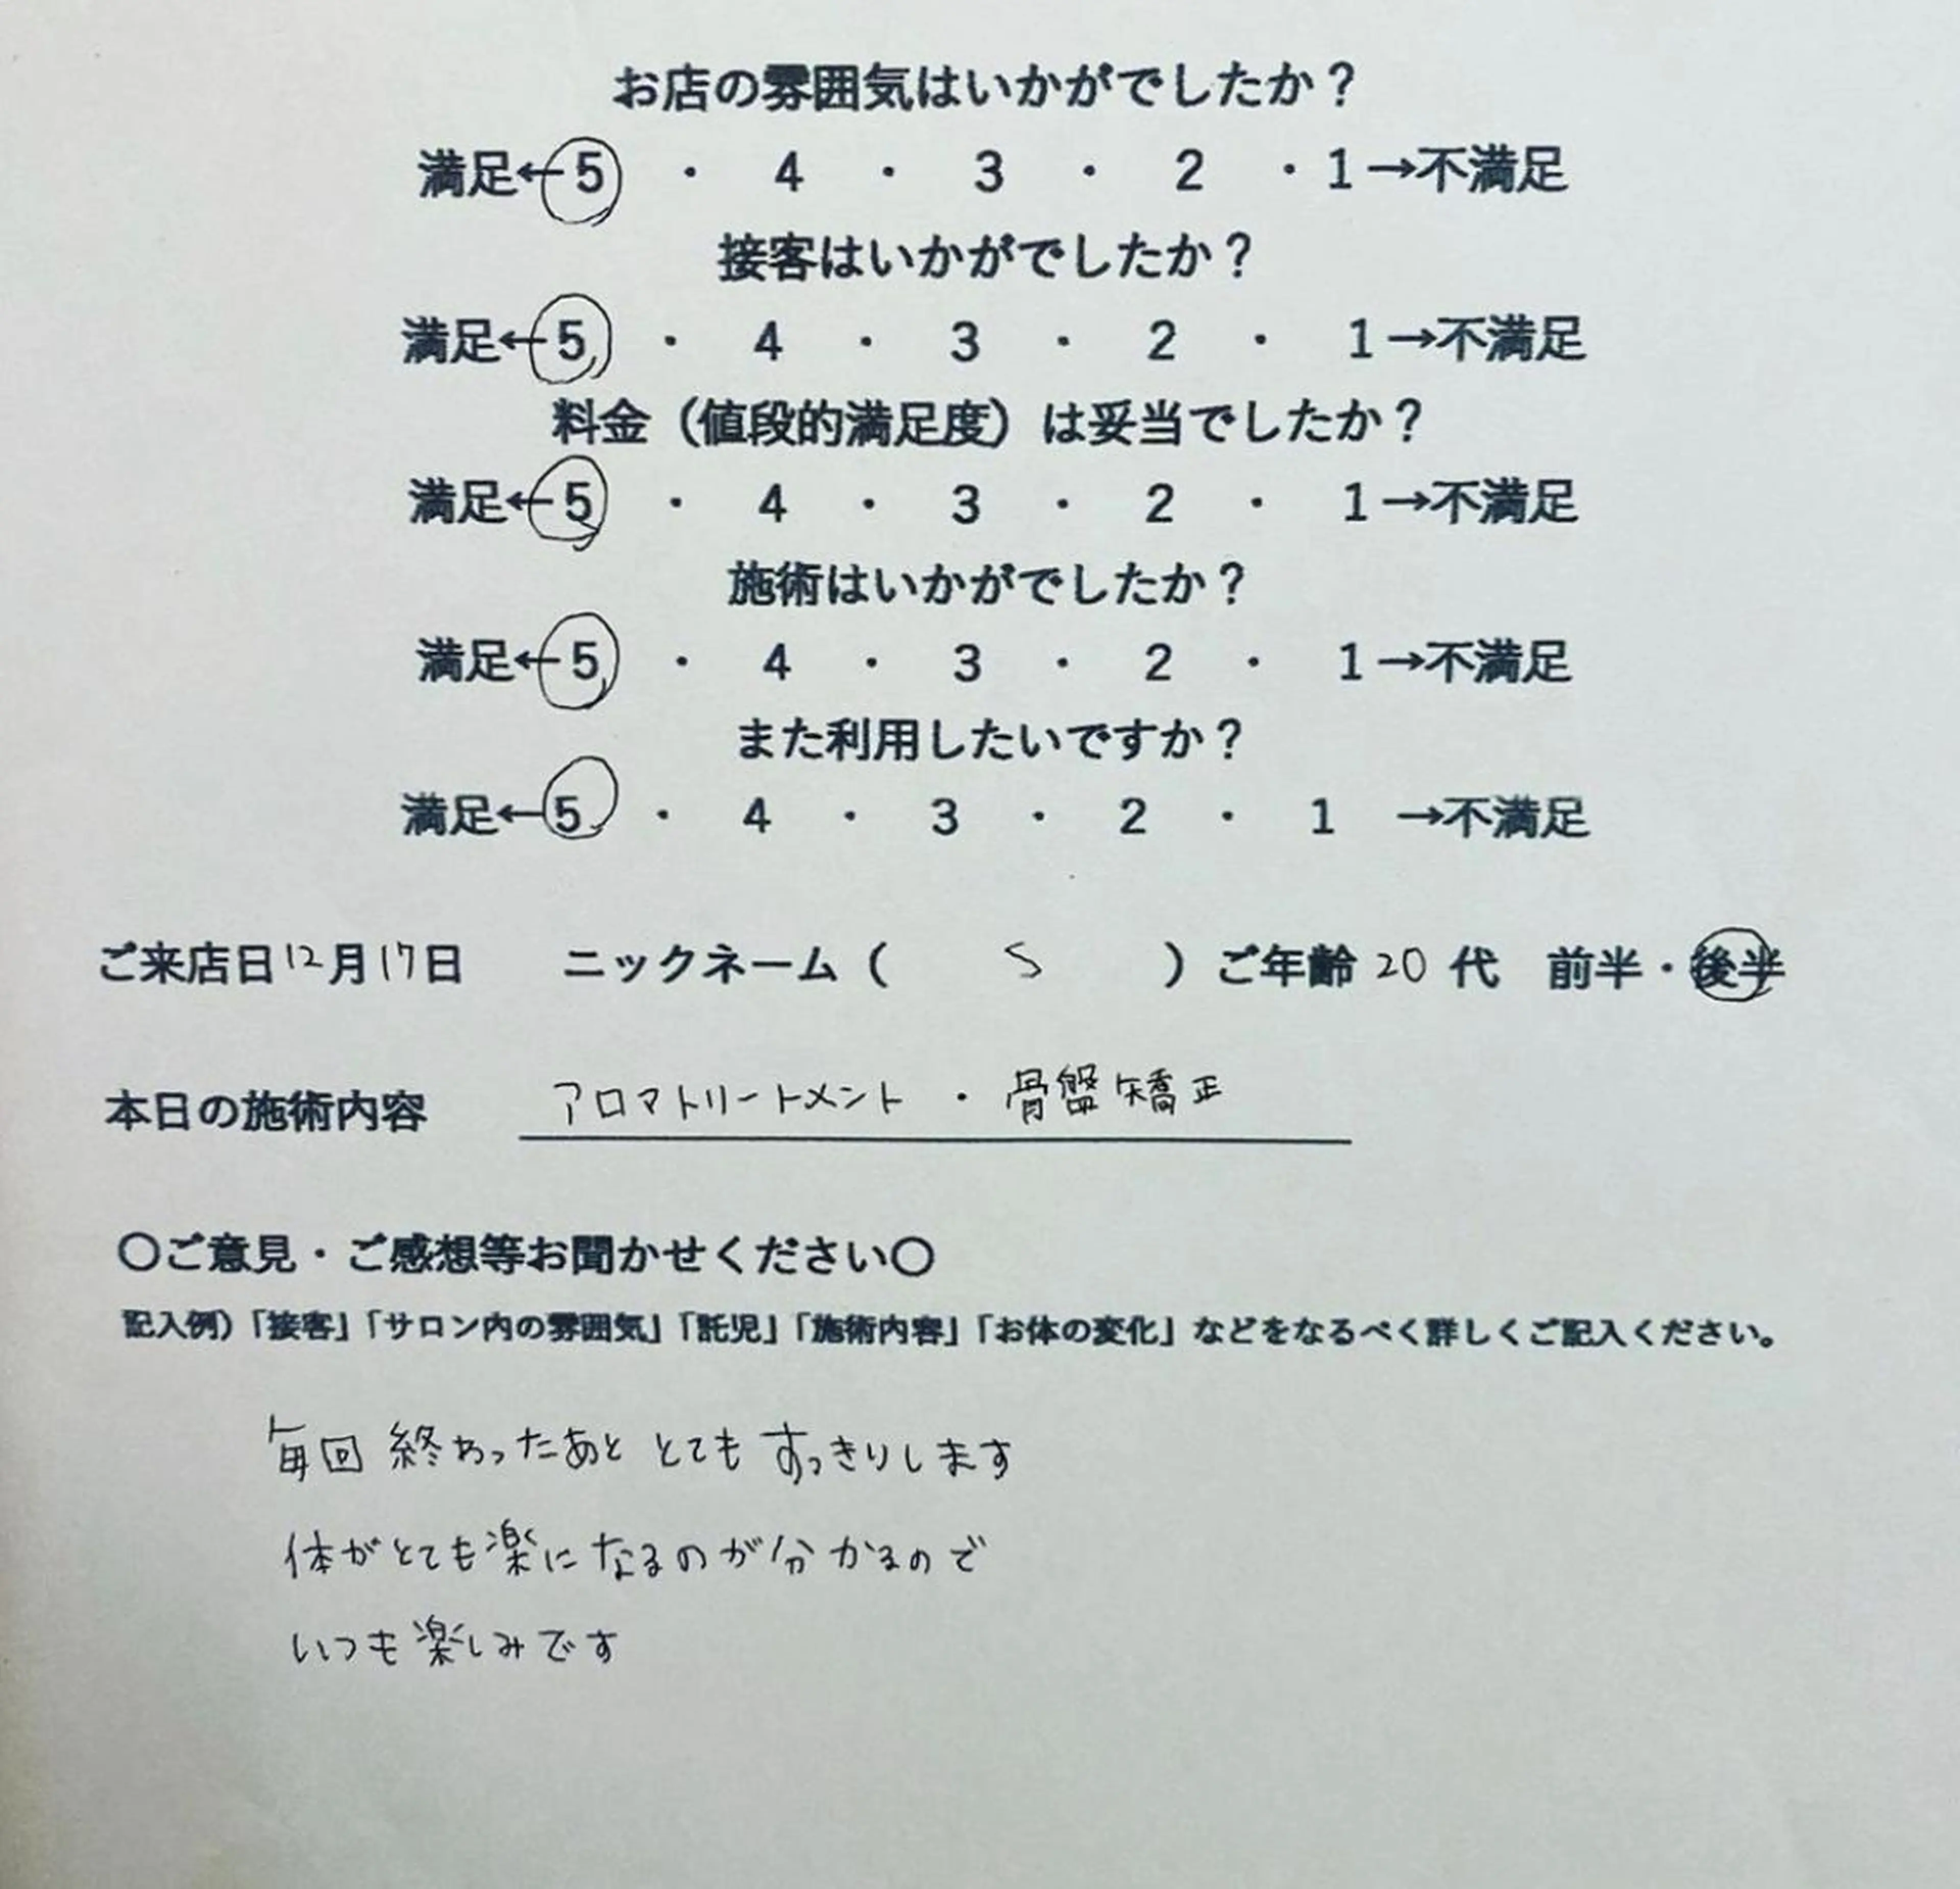 お店の雰囲気はいかがでしたか？
満足←5 ・ 4 ・ 3 ・ 2 ・1→不満足
接客はいかがでしたか？
満足←5 ・ 4 ・ 3 ・ 2 ・ 1→不満足
料金（値段的満足度）は妥当でしたか？
満足←5 ・ 4 ・ 3 ・ 2 ・ 1→不満足
施術はいかがでしたか？
満足←5 ・ 4 ・ 3 ・ 2 ・ 1→不満足
また利用したいですか？
満足←5 ・ 4 ・ 3 ・ 2 ・ 1 →不満足
ご来店日12月17日 ニックネーム（ S ）ご年齢20代 前半・後半
本日の施術内容 アロマトリートメント ・ 骨盤矯正
〇ご意見・ご感想等お聞かせください〇
記入例）「接客」「サロン内の雰囲気」「託児」「施術内容」「お体の変化」などをなるべく詳しくご記入ください。
毎回 終わったあと とても すっきりします
体がとても楽になるのが分かるので
いつも楽しみです